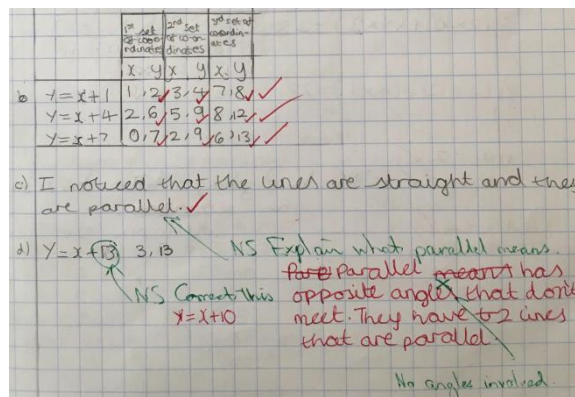 1st set of coordinates 2nd set of co-ordinates 3rd set of coordinates
x y x y x y
b y=x+1 1,2 3,4 7,8
y=x+4 2,6 5,9 8,12
y=x+7 0,7 2,9 6,13
c) I noticed that the lines are straight and they
are parallel.
d) y=x+13 3,13 NS Explain what parallel means.
Parallel means has
NS Correct this opposite angles that don't
y=x+10 meet. They have 2 lines
that are parallel
No angles involved.